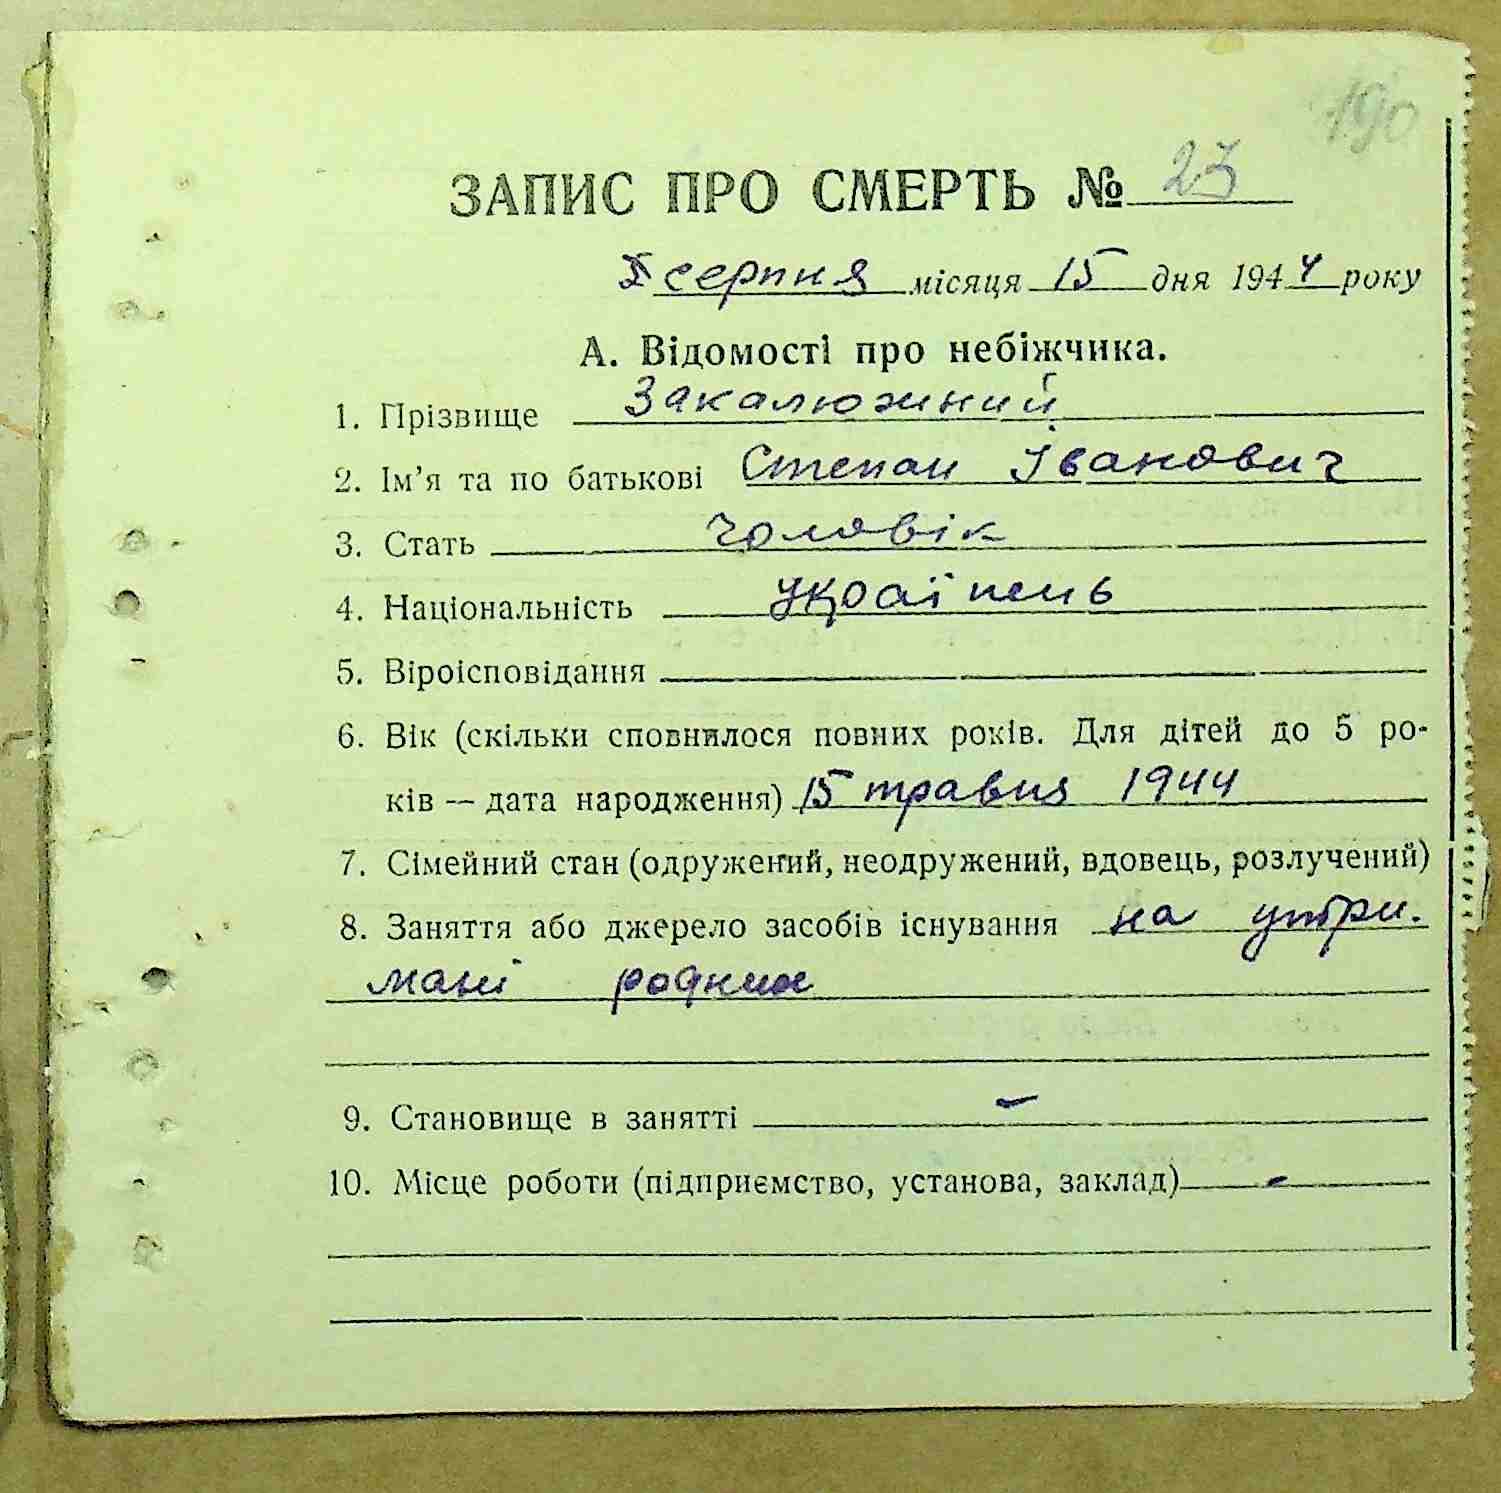 190
ЗАПИС ПРО СМЕРТЬ № 23
серпня місяця 15 дня 1944 року
А. Відомості про небіжчика.
1. Прізвище Закалюжний
2. Ім’я та по батькові Степан Іванович
3. Стать чоловік
4. Національність українець
5. Віроісповідання
6. Вік (скільки сповнилося повних років. Для дітей до 5 ро-
ків — дата народження) 15 травня 1944
7. Сімейний стан (одружений, неодружений, вдовець, розлучений)
8. Заняття або джерело засобів існування на утри-
мані родних
9. Становище в занятті -
10. Місце роботи (підприємство, установа, заклад) -